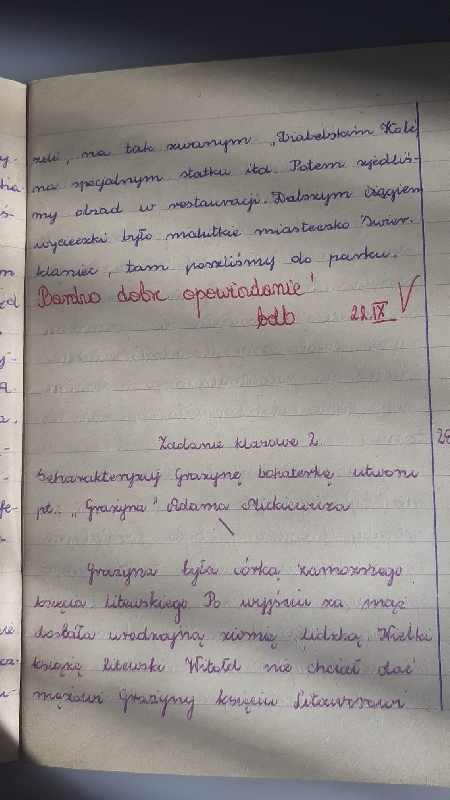 y-
żeli, na tak zwanym „Diabelskim Kole
na specjalnym statku itd. Potem zjedliś-
ś-
my obiad w restauracji. Dalszym ciągiem
wycieczki było malutkie miasteczko Świer-
klaniec, tam poszliśmy do parku.
Bardzo dobre opowiadanie!
bdb 22.IX
Zadanie klasowe 2. 28
Scharakteryzuj Grażynę bohaterkę utworu
pt.: „Grażyna" Adama Mickiewicza
Grażyna była córką zamożnego
księcia litewskiego Po wyjściu za mąż
dostała urodzajną ziemię lidzką. Wielki
książę litewski Witold nie chciał dać
mężowi Grażyny księciu Litaworowi